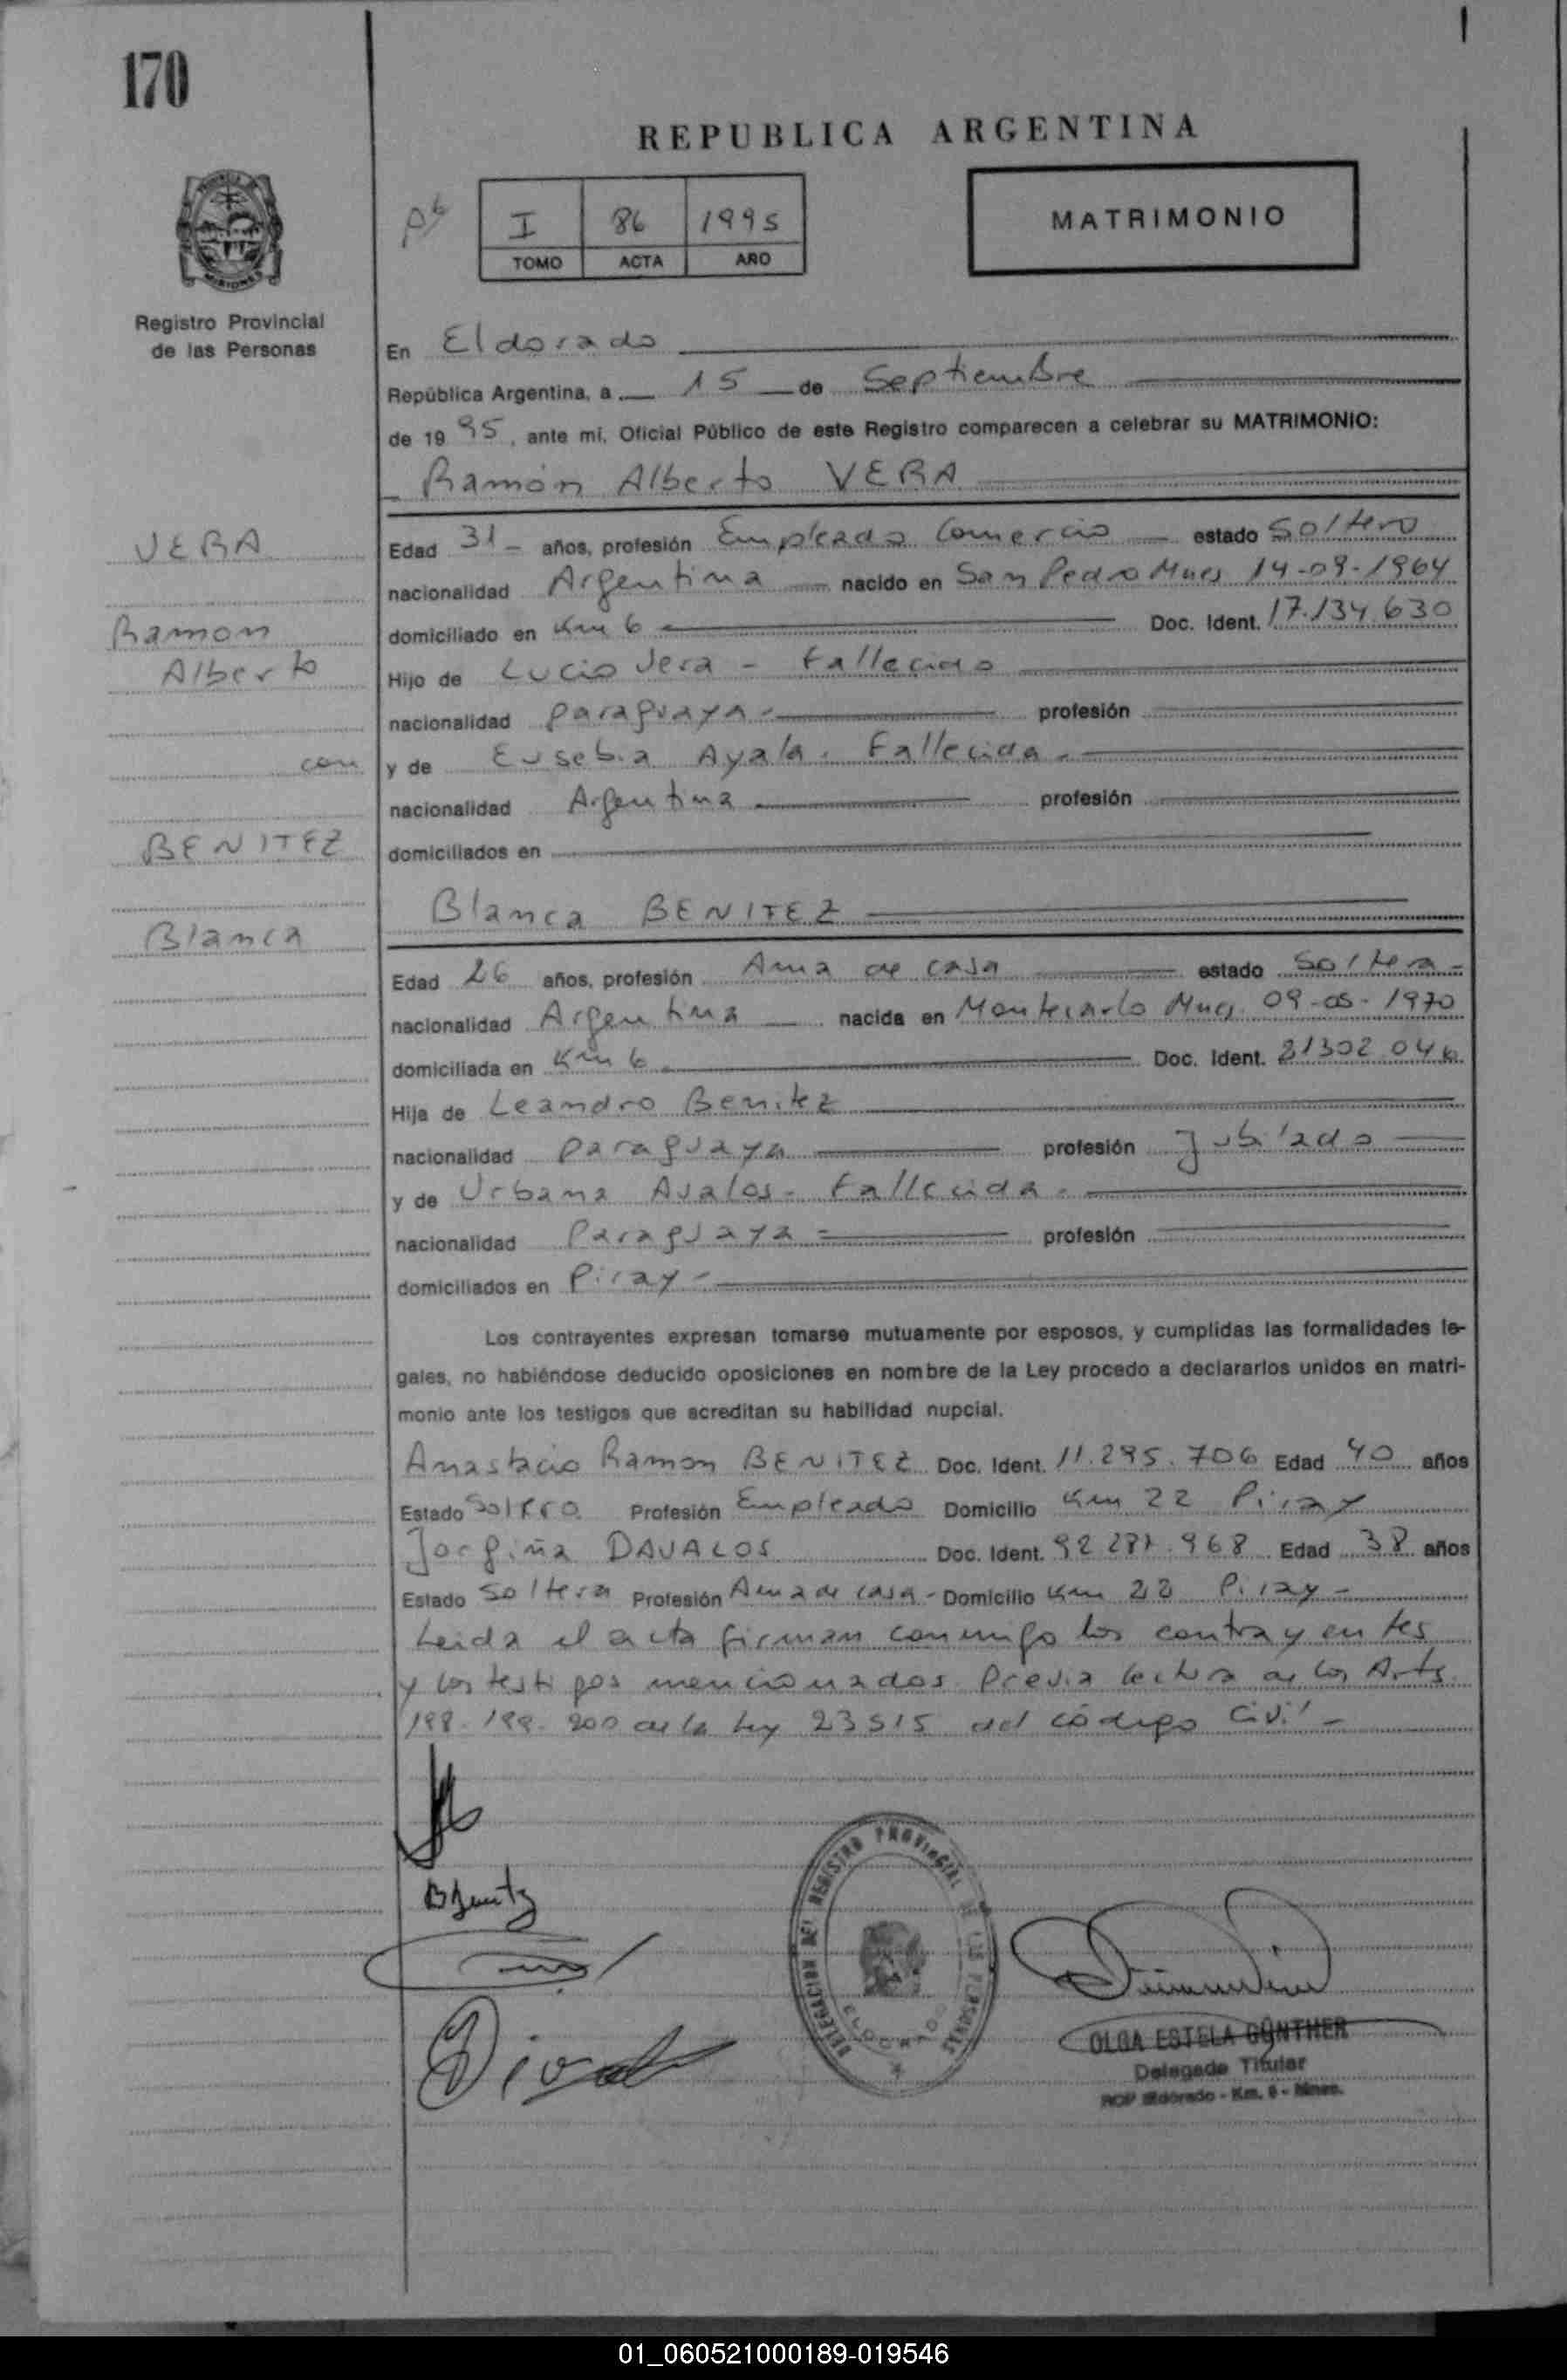 170
REPUBLICA ARGENTINA
I 86 1995
TOMO ACTA AÑO
MATRIMONIO
Registro Provincial
de las Personas
En Eldorado
República Argentina, a 15 de Septiembre
de 1995, ante mí, Oficial Público de este Registro comparecen a celebrar su MATRIMONIO:
Ramón Alberto VERA
VERA
Ramon
Alberto
con
BENITEZ
Blanca
Edad 31 - años, profesión Empleado Comercio estado Soltero
nacionalidad Argentina nacido en San Pedro Mnes 14-09-1964
domiciliado en Km 6 Doc. Ident. 17.134.630
Hijo de Lucio Vera - Fallecido
nacionalidad paraguaya - profesión
y de Eusebia Ayala. Fallecida -
nacionalidad Argentina profesión
domiciliados en
Blanca BENITEZ
Edad 26 años, profesión Ama de casa estado Soltera -
nacionalidad Argentina nacida en Montecarlo Mnes. 09-05-1970
domiciliada en Km 6 Doc. Ident. 21302.046
Hija de Leandro Benitez
nacionalidad paraguaya profesión Jubilado
y de Urbana Avalos - Fallecida -
nacionalidad Paraguaya - profesión
domiciliados en Piray -
Los contrayentes expresan tomarse mutuamente por esposos, y cumplidas las formalidades le-
gales, no habiéndose deducido oposiciones en nombre de la Ley procedo a declararlos unidos en matri-
monio ante los testigos que acreditan su habilidad nupcial.
Anastacio Ramon BENITEZ Doc. Ident. 11.295.706 Edad 40 años
Estado Soltero Profesión Empleado Domicilio Km 22 Piray
Jorgiña DAVALOS Doc. Ident. 92 287.968 Edad 38 años
Estado Soltera Profesión Ama de casa - Domicilio Km 22 Piray -
Leida el acta firman conmigo los contrayentes
y los testigos mencionados. Previa lectura de los Arts.
198. 199. 200 de la Ley 23515 del código Civil -
DELEGACION DEL REGISTRO PROVINCIAL DE LAS PERSONAS
ELDORADO
OLGA ESTELA GÜNTHER
Delegada Titular
RCP Eldorado - Km. 6 - Mnes.
01_060521000189-019546